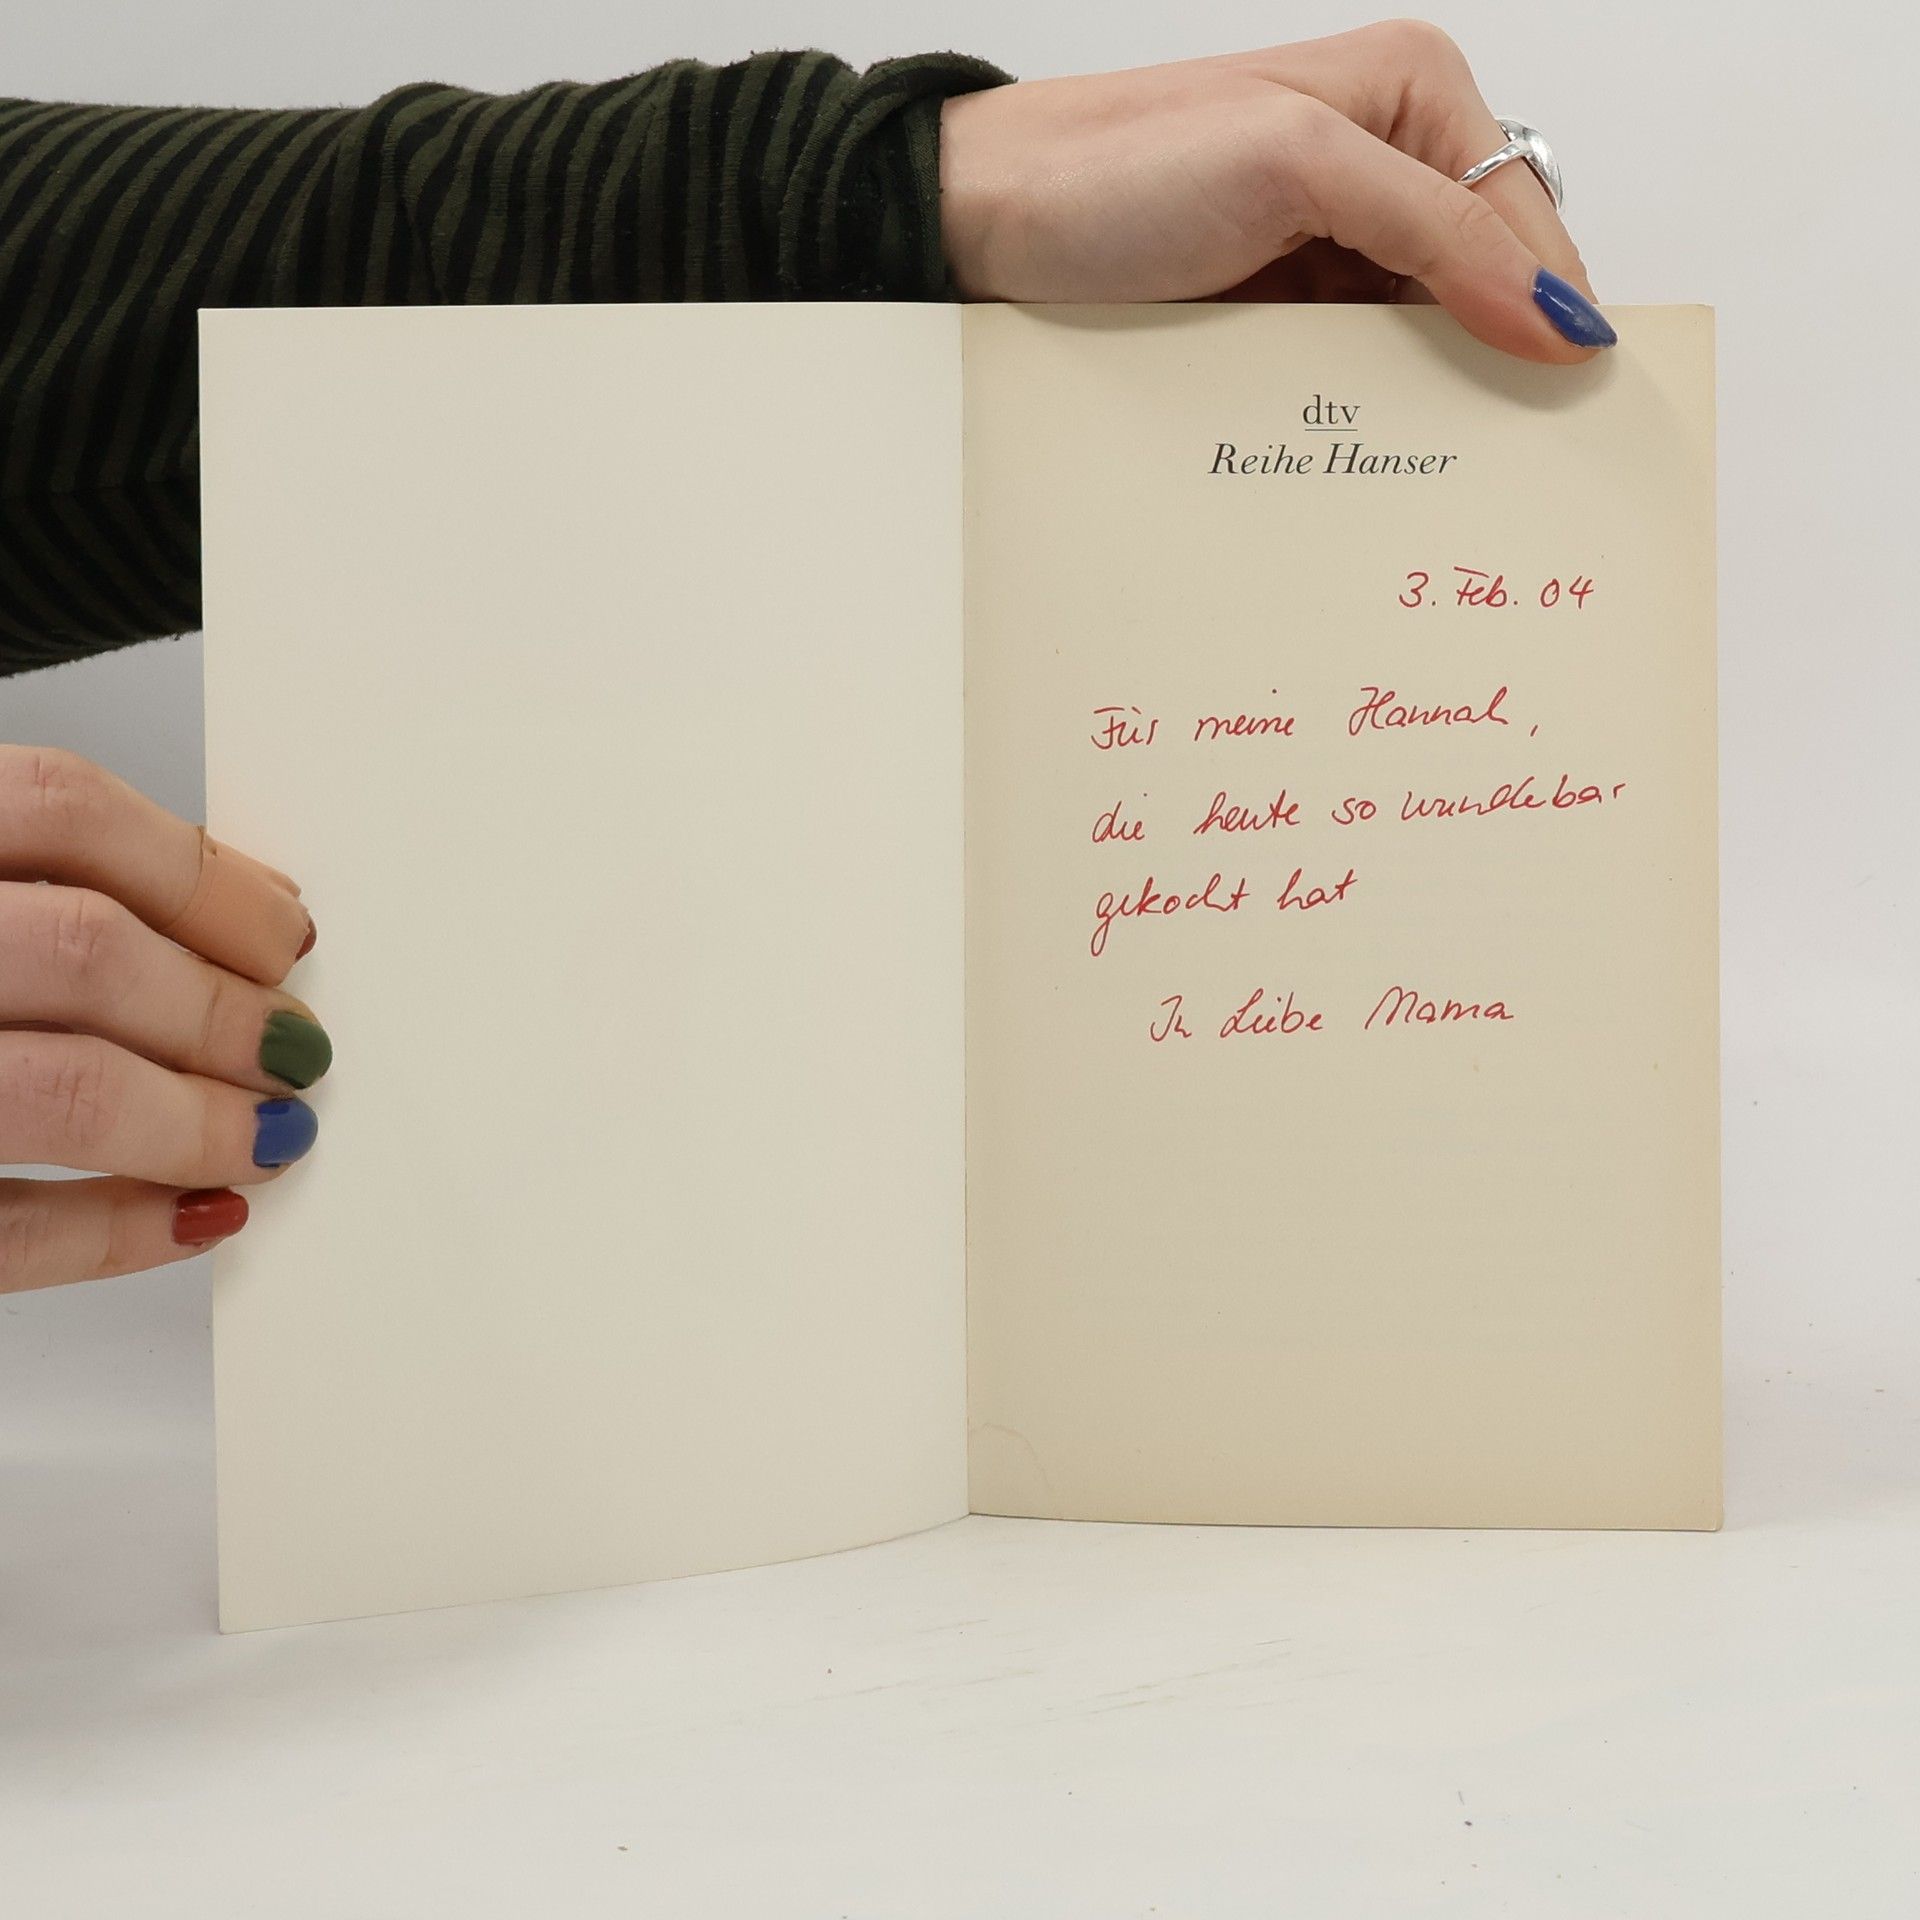 dtv
Reihe Hanser
3. Feb. 04
Für meine Hannah,
die heute so wunderbar
gekocht hat
In Liebe Mama